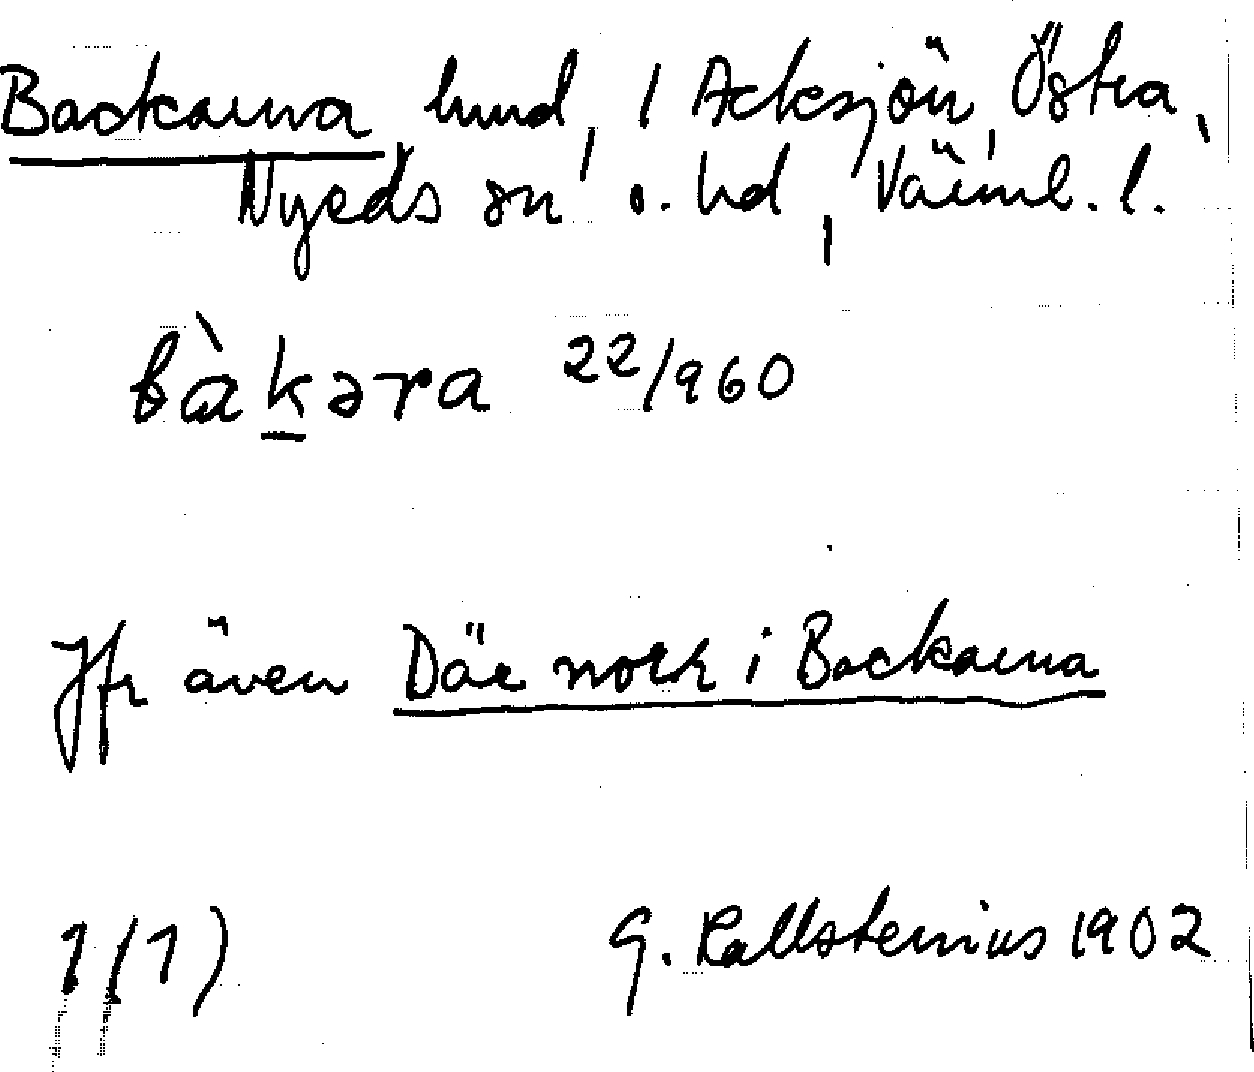 Backarna hmd, 1 Acksjön, Östra,
Nyeds sn o. hd, Värml. l.
bàkəra 22/960
Jfr även Där norr i Backarna
1(1) G. Kallstenius 1902